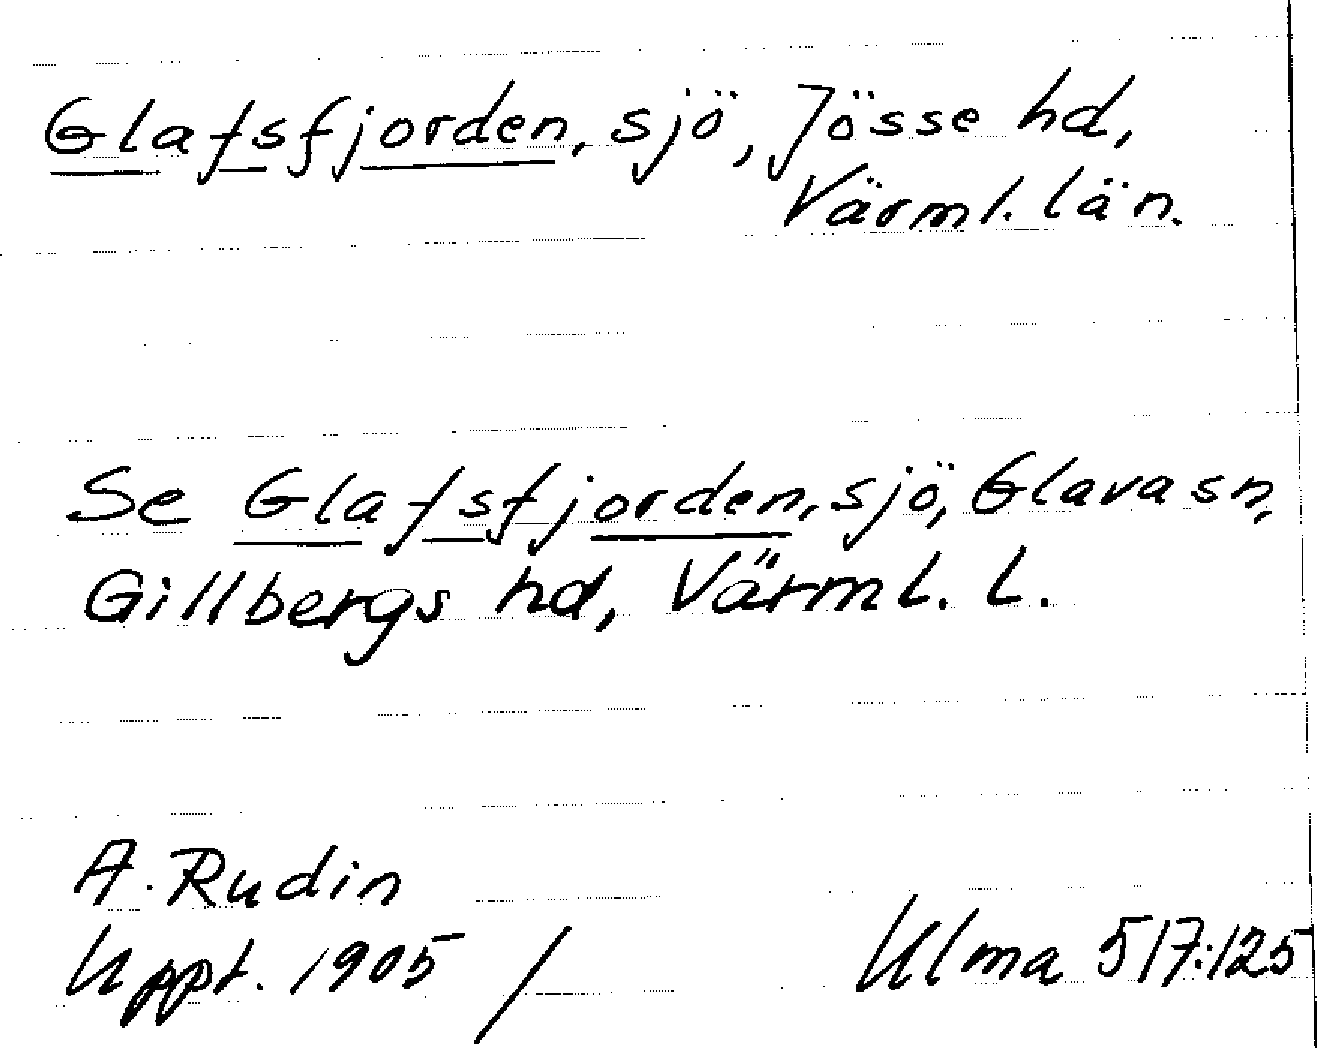 Glafsfjorden, sjö, Jösse hd,
Värml. län.
Se Glafsfjorden, sjö, Glava sn,
Gillbergs hd, Värml. l.
A. Rudin
Uppt. 1905 /
Ulma 517:125